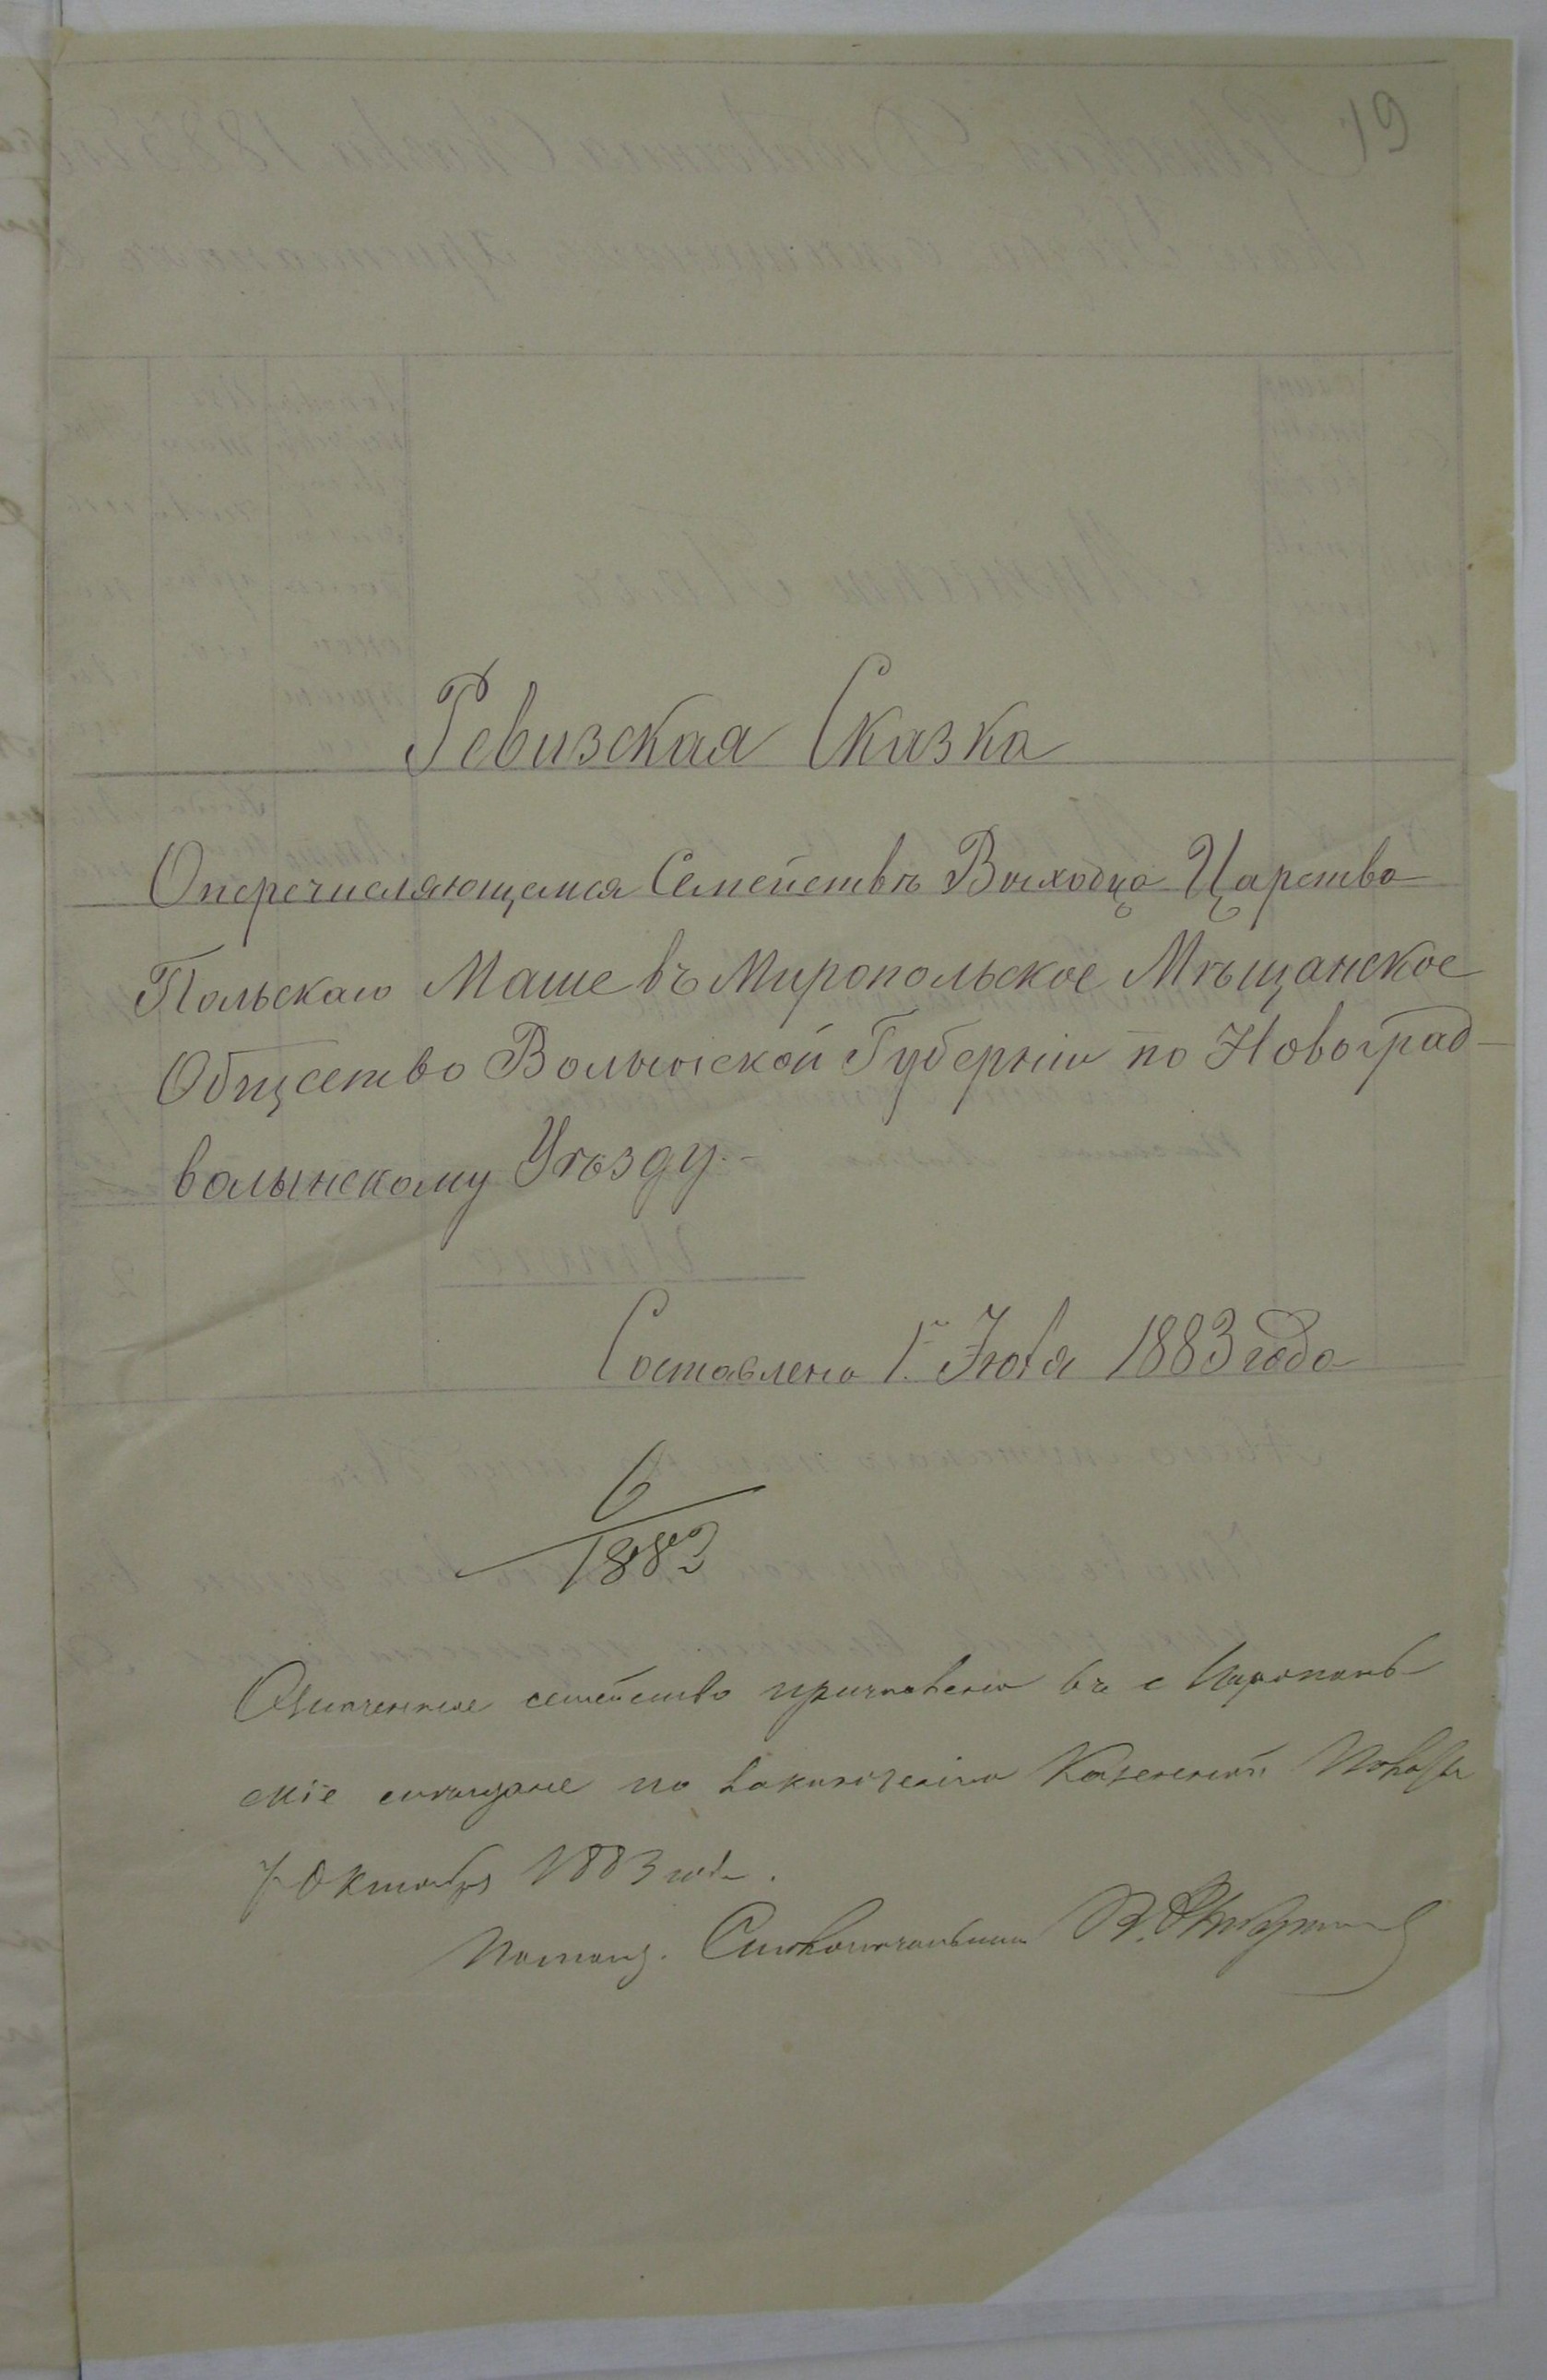 19
Ревизская Сказка
О перечисляющемся Семействѣ Выходца Царства
Польскаго Маше въ Миропольское Мѣщанское
Общество Волынской Губерніи по Новоград-
волынскому Уѣзду.-
Составлена 1го 1883 года
6
1883
Означенное семейство причислено въ
скіе мѣщане по Казенной Палаты
7 Октября 1883 года.
Помощ. Столоначальника